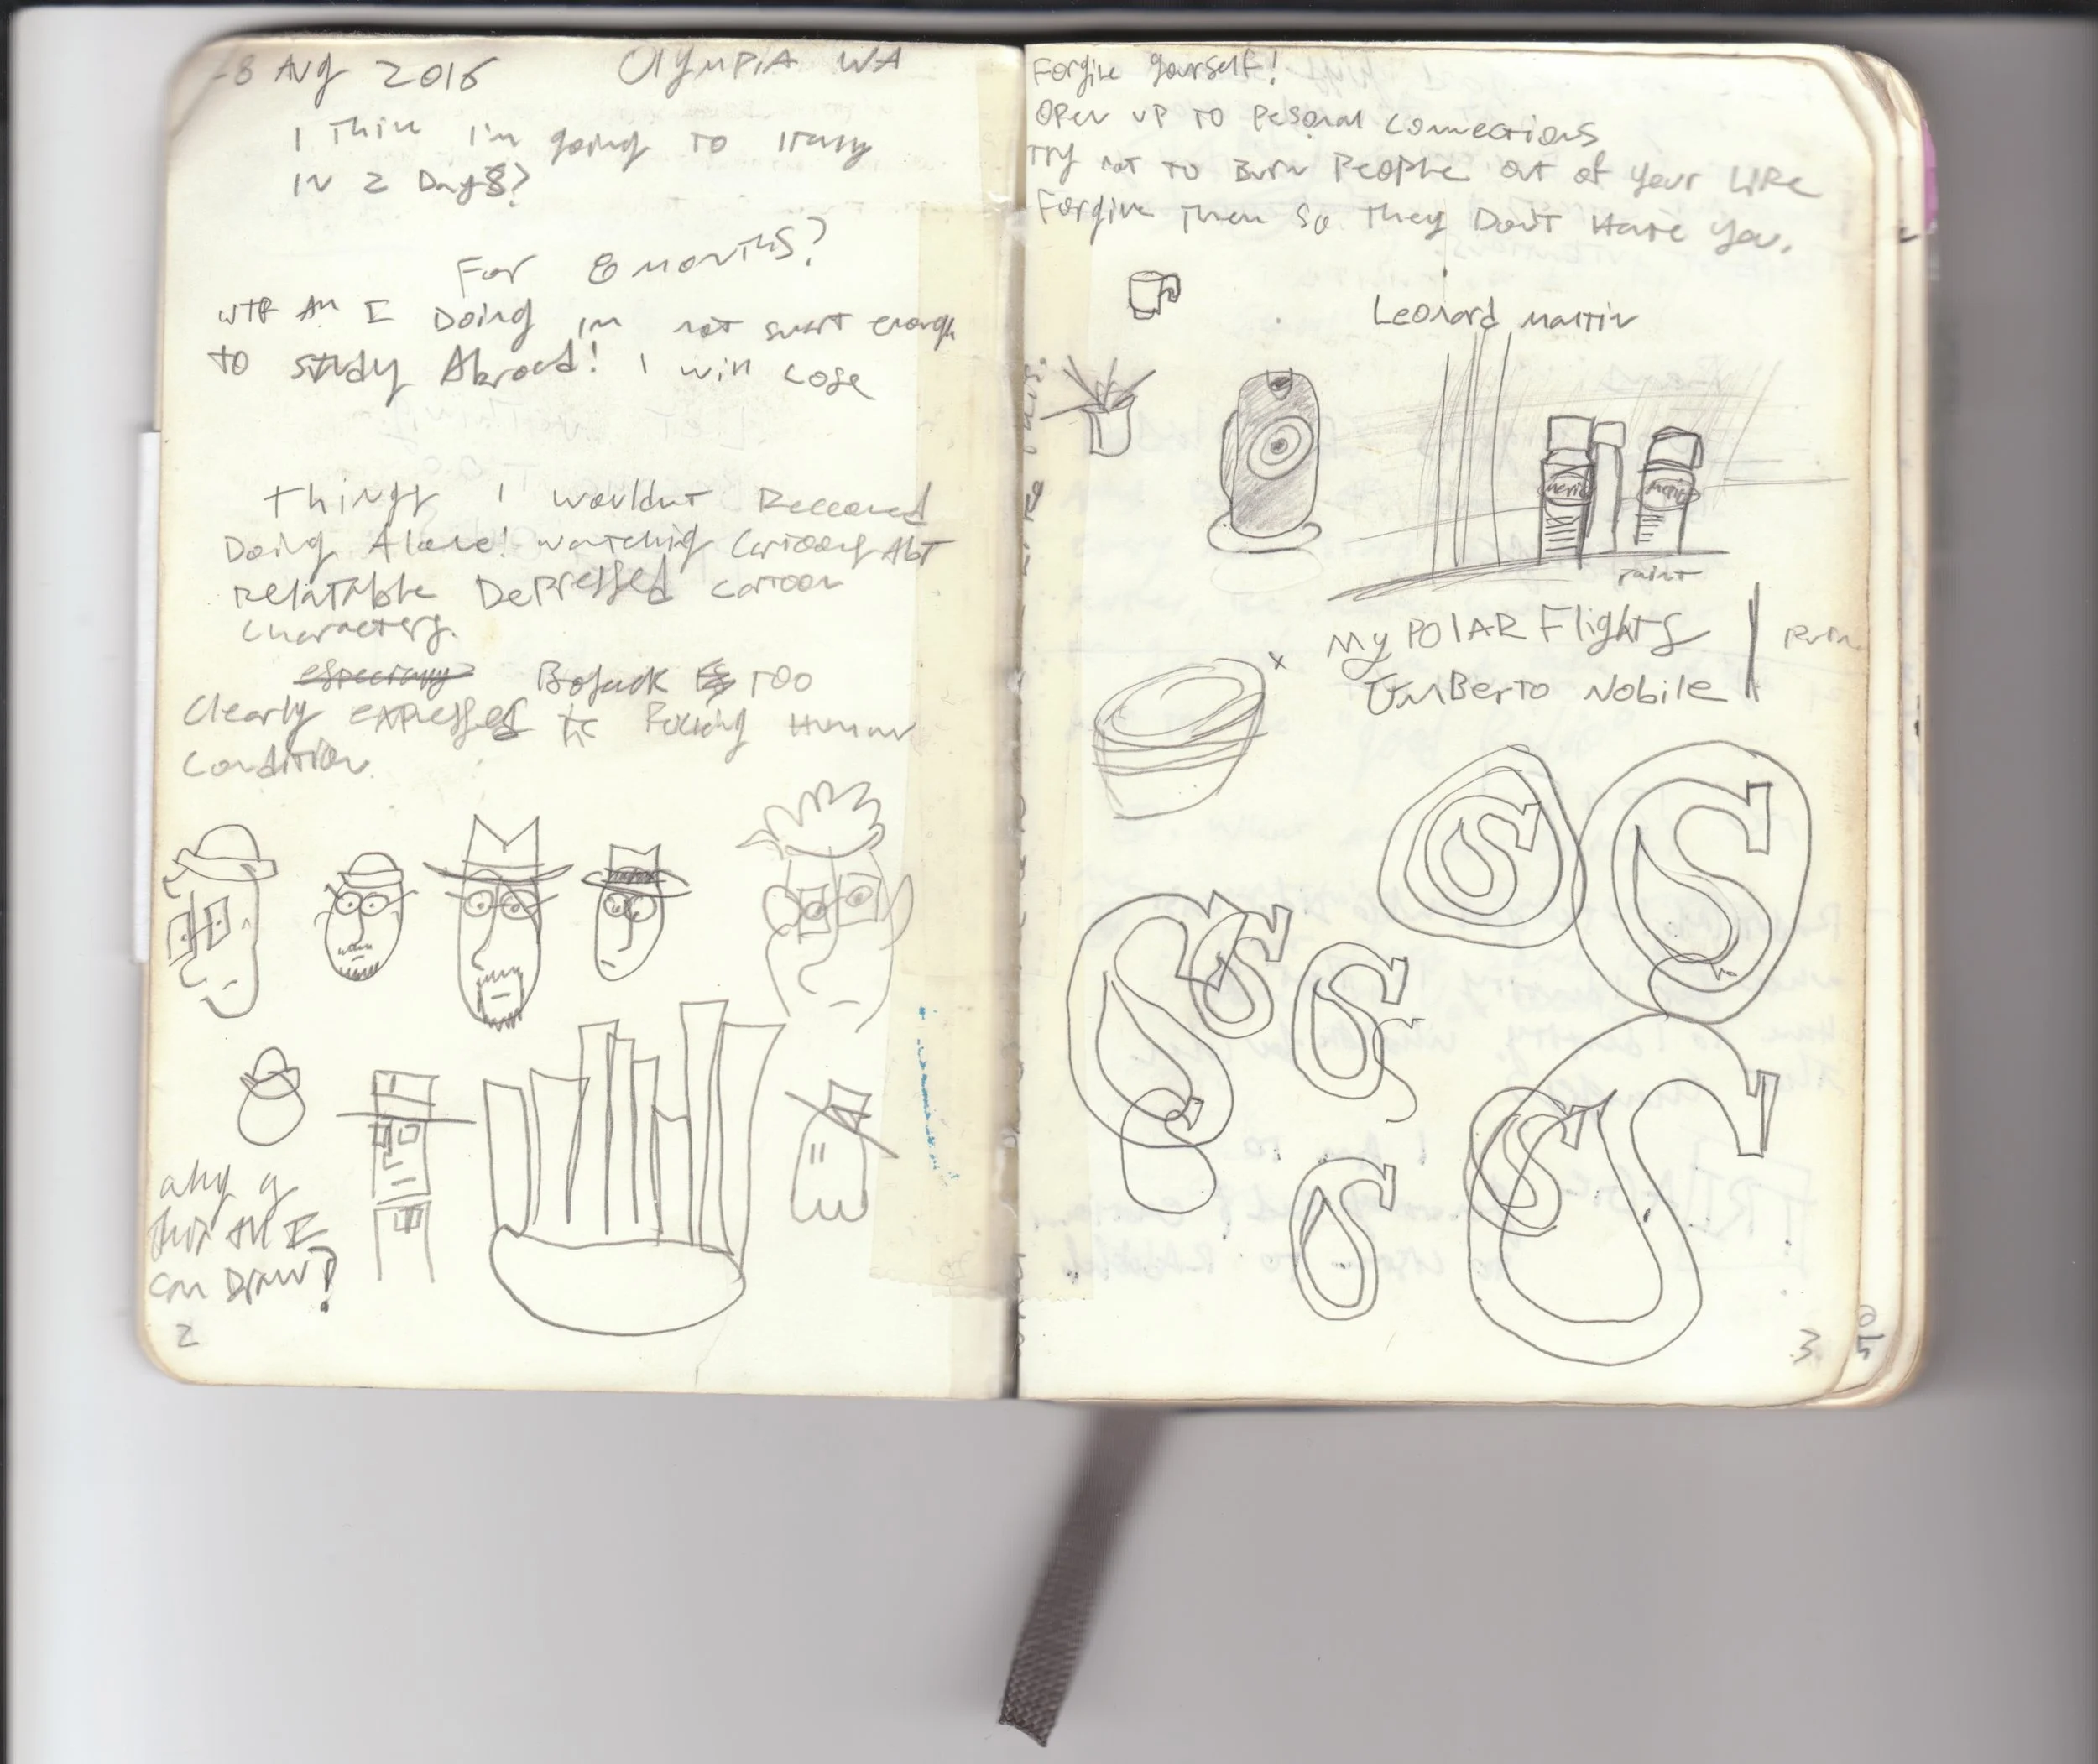 8 Aug 2016 Olympia WA
I Think I'm going to Italy
in 2 Days?
For 8 months?
WTF Am I Doing im not smart enough
to study Abroad! I will Lose
Things I wouldnt Reccomed
Doing Alone! watching Cartoons Abt
Relatable Depressed cartoon
characters.
especially Bojack Is TOO
Clearly expresses the Fucking Human
Condition
why is
this All I
can Draw?
2
Forgive yourself!
Open up to Pesonal Connections
Try not to Burn People out of your LiFe
Forgive Them so They Don't Hate you.
Leonard Martin
paint
My POLAR Flights
Umberto Nobile
S
S
S
S
S
S
S
S
3